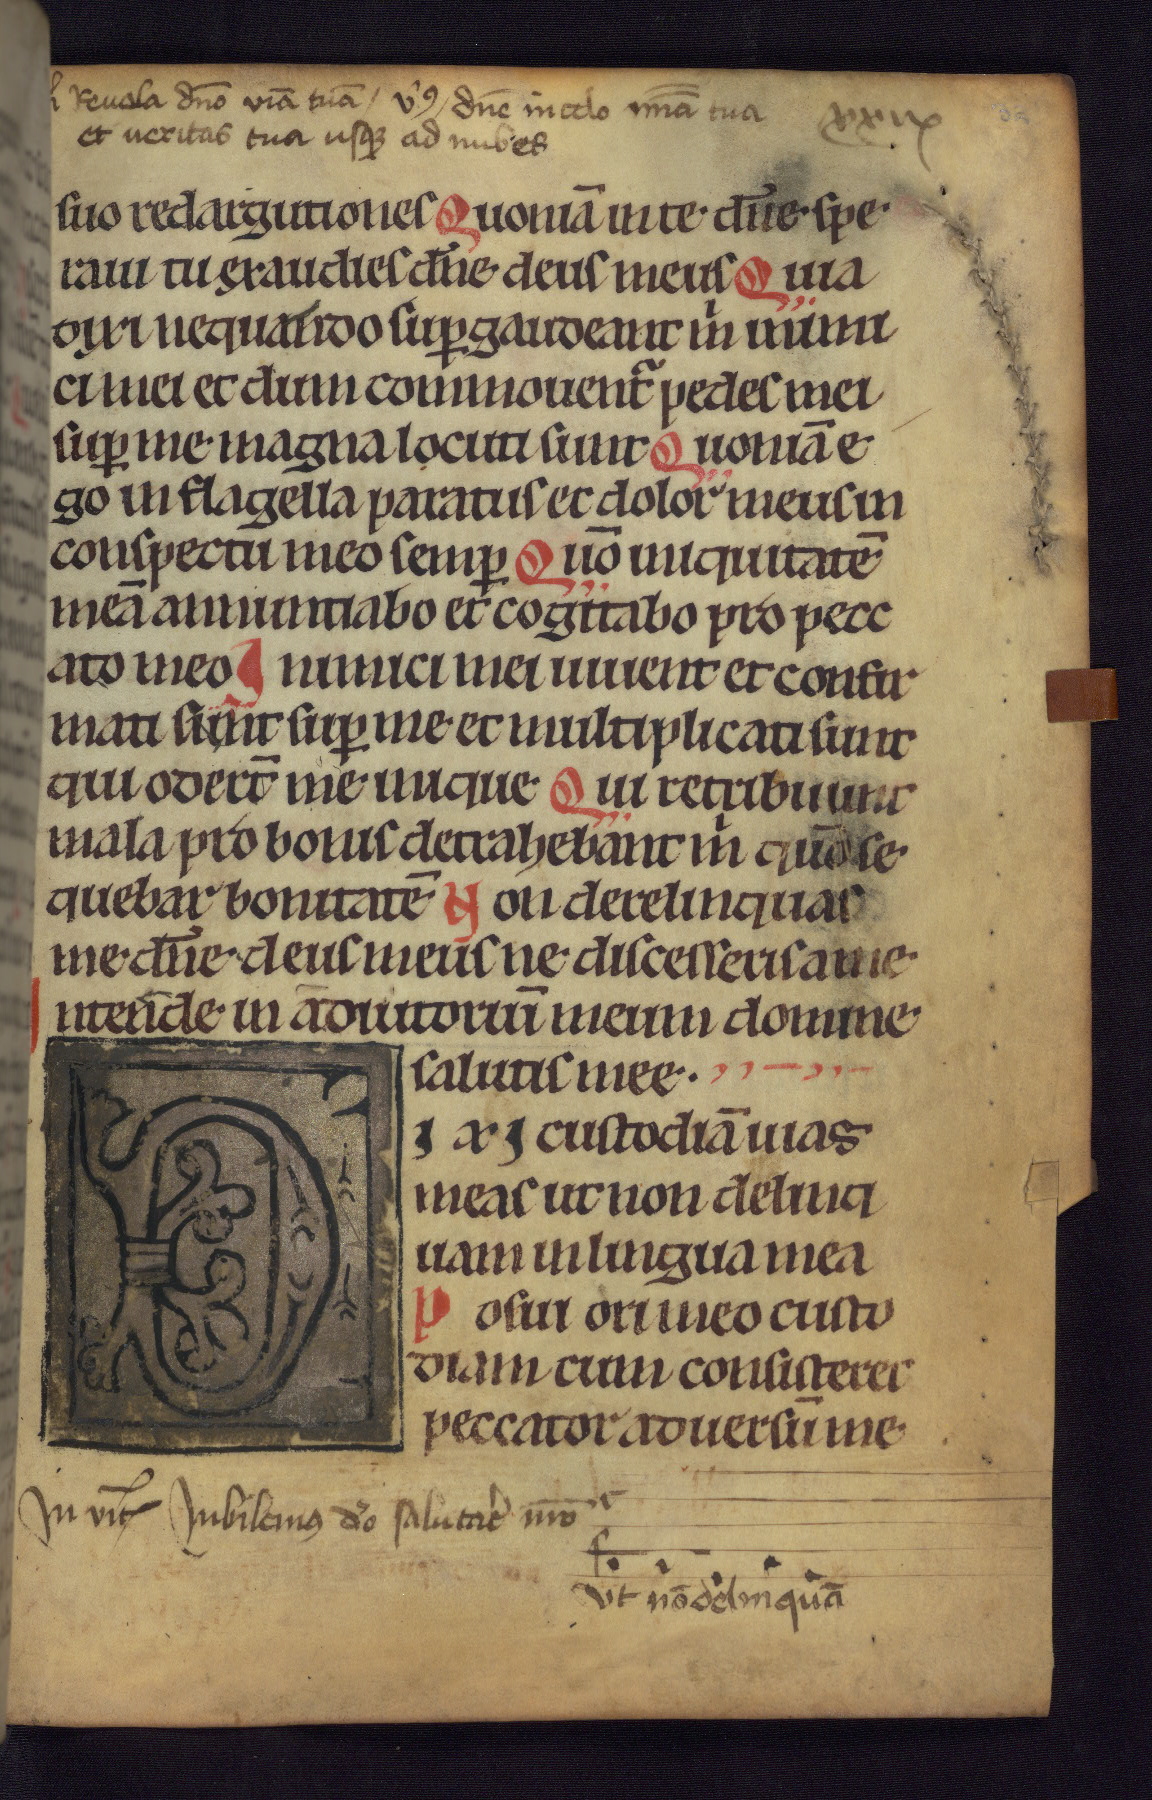 Reuela dño viā tuā / v̉9 / dñe in celo mīa tua xxix
et ueritas tua usq̄ ad nubes
suo redargutiones Quoniā in te dñe spe
raui tu exaudies dñe deus meus Quia
dixi nequando sup̱gaudeant m̉ inimi
ci mei et dum commouent̃ pedes mei
sup̱ me magna locuti sunt Quoniā e
go in flagella paratus et dolor meus in
conspectu meo semp̱ Qūo iniquitatē
meā annuntiabo et cogitabo pro pecc
ato meo Inimici mei uiuent et confir
mati sunt sup̱ me et multiplicati sunt
qui odert̄ me inique Qui retribuunt
mala pro bonis detrahebant m̉ qūo se
quebar bonitatē Non derelinquas
me dñe deus meus ne discesseris a me
Intende in adiutoriū meum domine
salutis mee.
DIXI custodiā uias
meas ut non delinq
uam in lingua mea
Posui ori meo custo
diam cum consisteret
peccator aduersū me
In vit̃ Jubilem9 dō salutarī nr̄o
vt nō delinquā